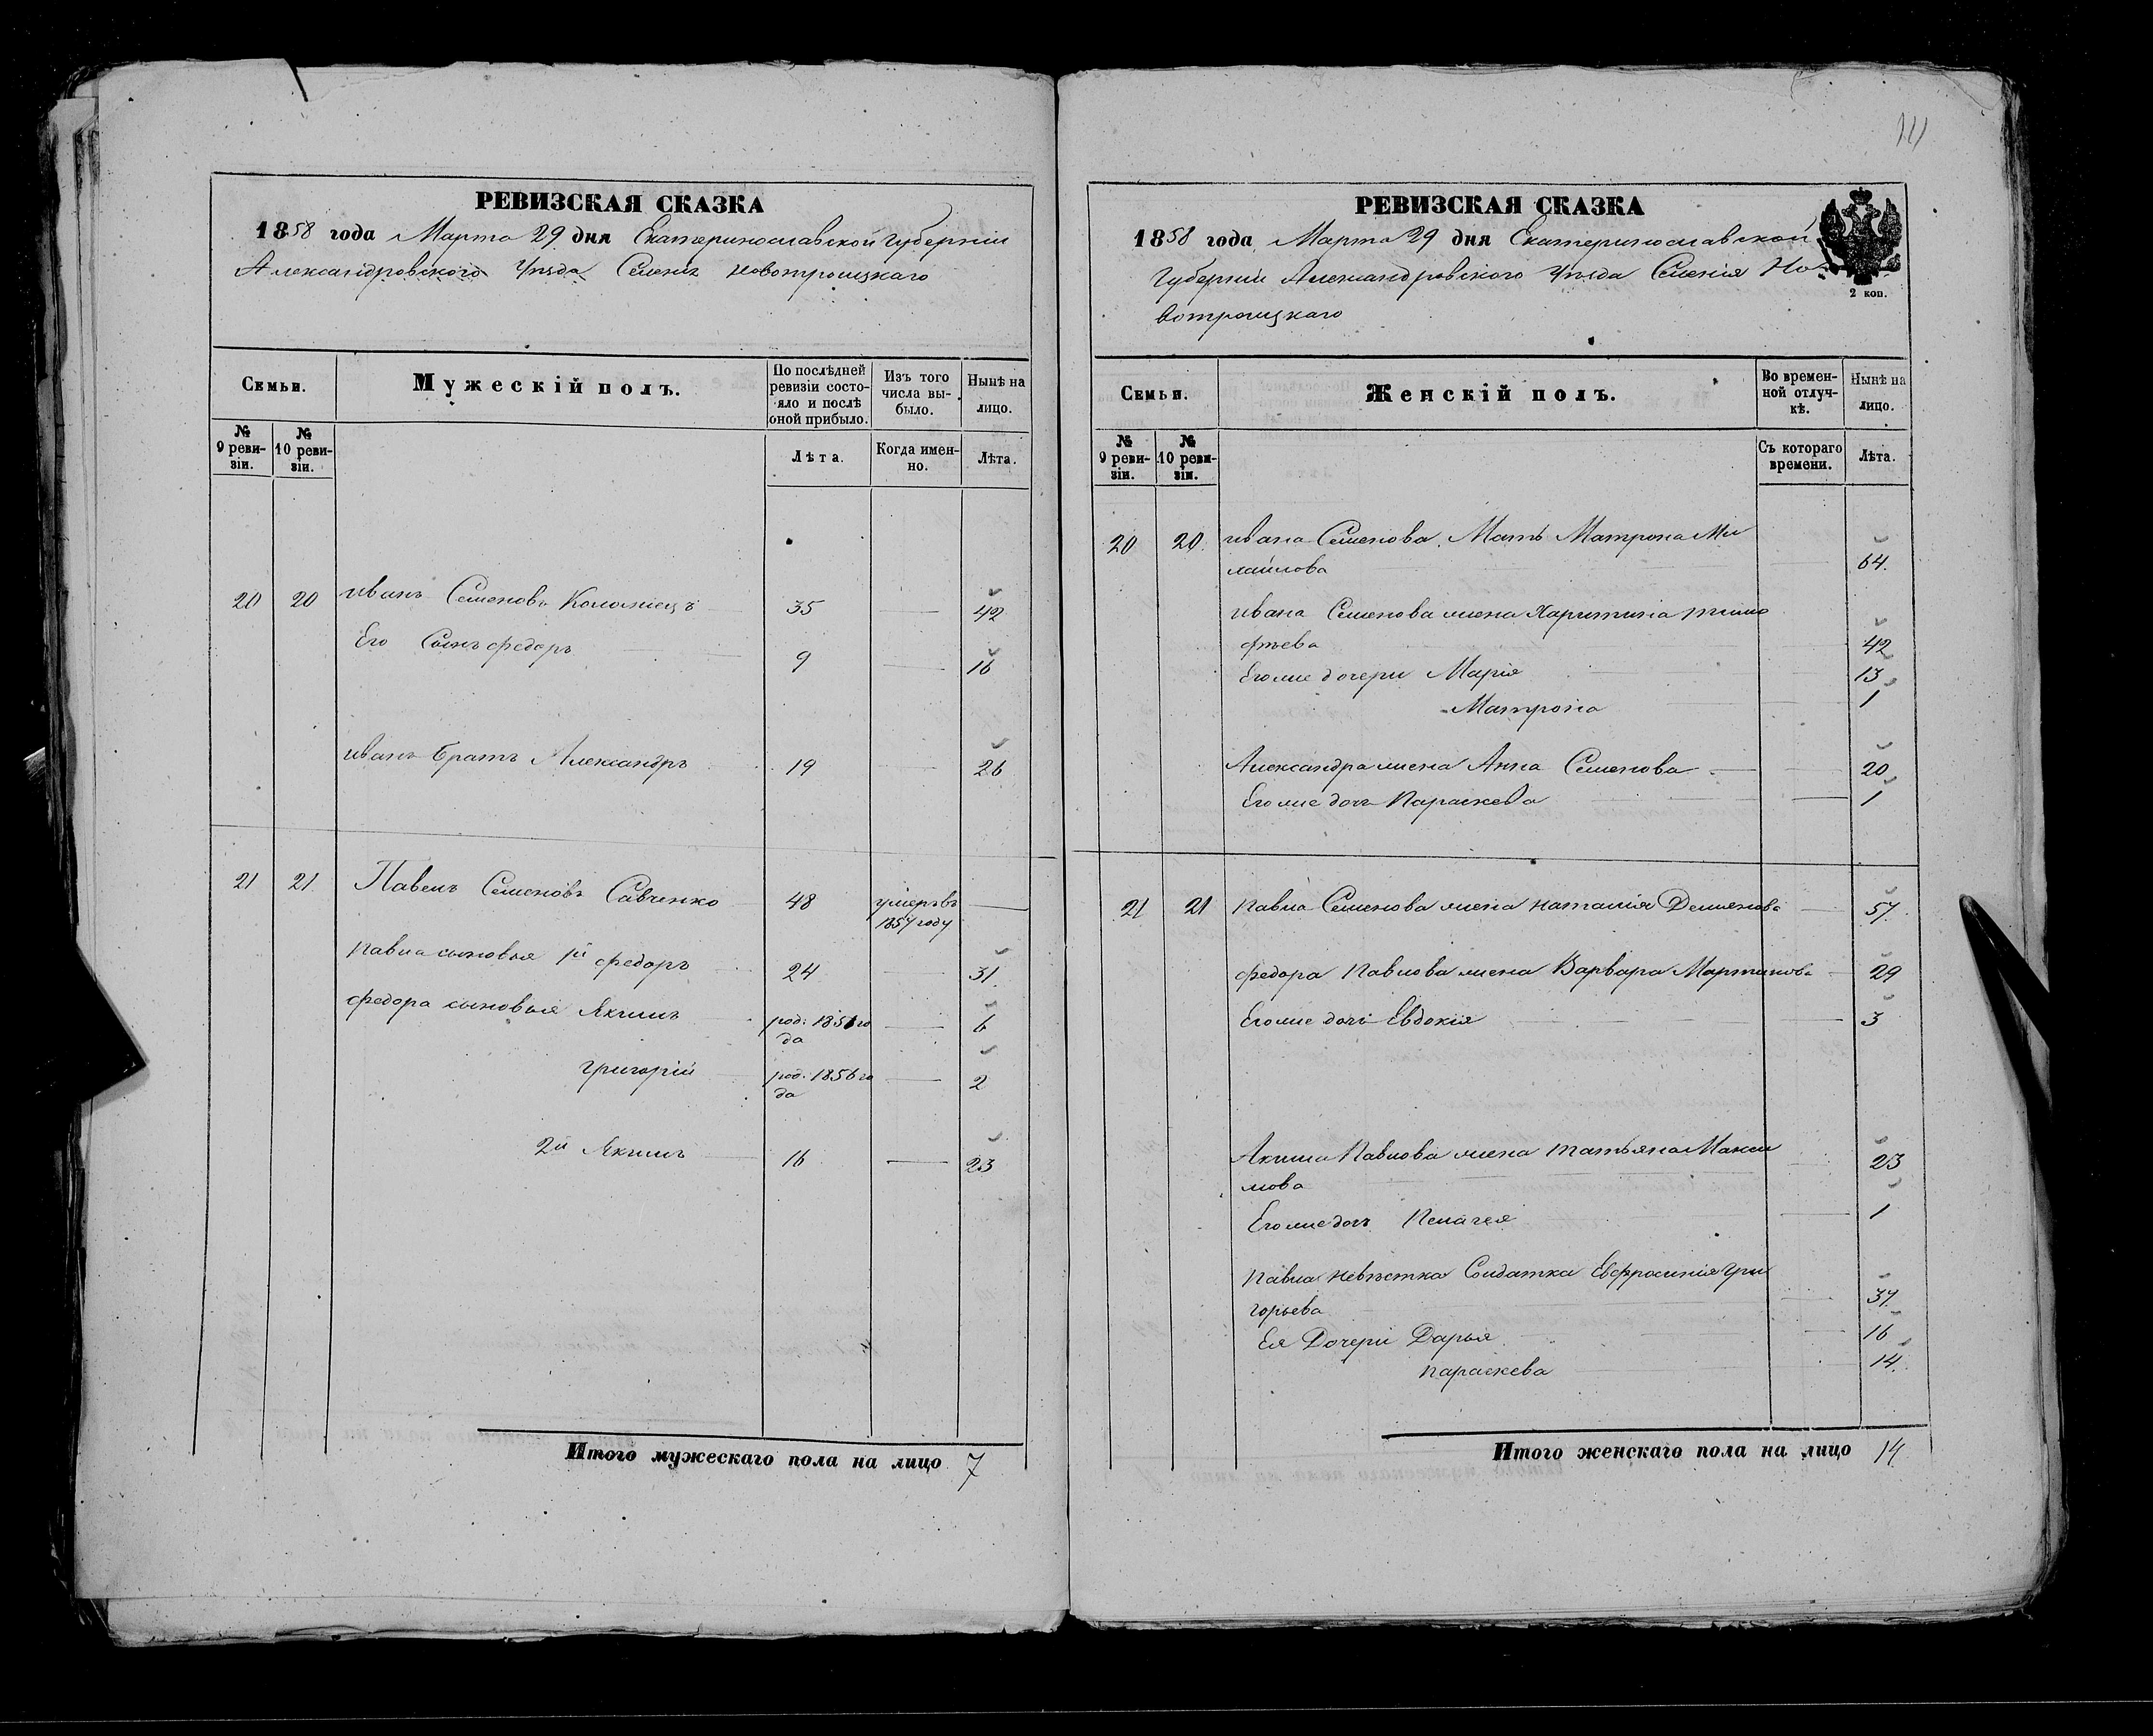 111
РЕВИЗСКАЯ СКАЗКА
1858 года Марта 29 дня Екатеринославской губерніи
Александровского Уѣзда Селенія Новотроицкаго
Семьи.
Мужескій полъ.
По послѣдней ревизіи состо-
яло и послѣ оной прибыло.
Изъ того числа вы-
было.
Нынѣ на лицо.
№ 9 реви-
зіи.
№ 10 реви-
зіи.
Лѣта.
Когда имен-
но.
Лѣта.
20 20 иванъ Семеновъ Коломіецъ 35 — 42
Его Сынъ федоръ 9 — 16
иванъ братъ Александръ 19 — 26
21 21 Павелъ Семеновъ Савченко 48 умеръ въ —
1857 году
павла сыновья 1й федоръ 24 — 31.
федора сыновья Якимъ род: 1851 го — 6
да
григорій род. 1856 го — 2
да
2й Якимъ 16 — 23
Итого мужескаго пола на лицо 7
РЕВИЗСКАЯ СКАЗКА
1858 года Марта 29 дня Екатеринославской
Губерніи Александровского Уѣзда Селенія Но-
вотроицкаго
2 коп.
Семьи.
Женскій полъ.
Во времен-
ной отлуч-
кѣ.
Нынѣ на лицо.
№ 9 реви-
зіи.
№ 10 реви-
зіи.
Съ котораго времени.
Лѣта.
20 20. ивана Семенова Мать Матрона Ми
хайлова 64.
ивана Семенова жена Харитина тимо
фѣева 42
Его же дочери Марія 13
Матрона 1
Александра жена Анна Семенова 20
Его же дочь Параскева 1
21 21 павла Семенова жена наталія Демьянова 57.
федора павлова жена Варвара Мартинова 29
Его же дочь Евдокія 3
Акима Павлова жена татьяна Макси
мова 23
Его же дочь Пелагея 1
павла невѣстка Солдатка Евфросинія гри
горьева 37.
Ея Дочери Дарья 16
параскева 14.
Итого женскаго пола на лицо 14